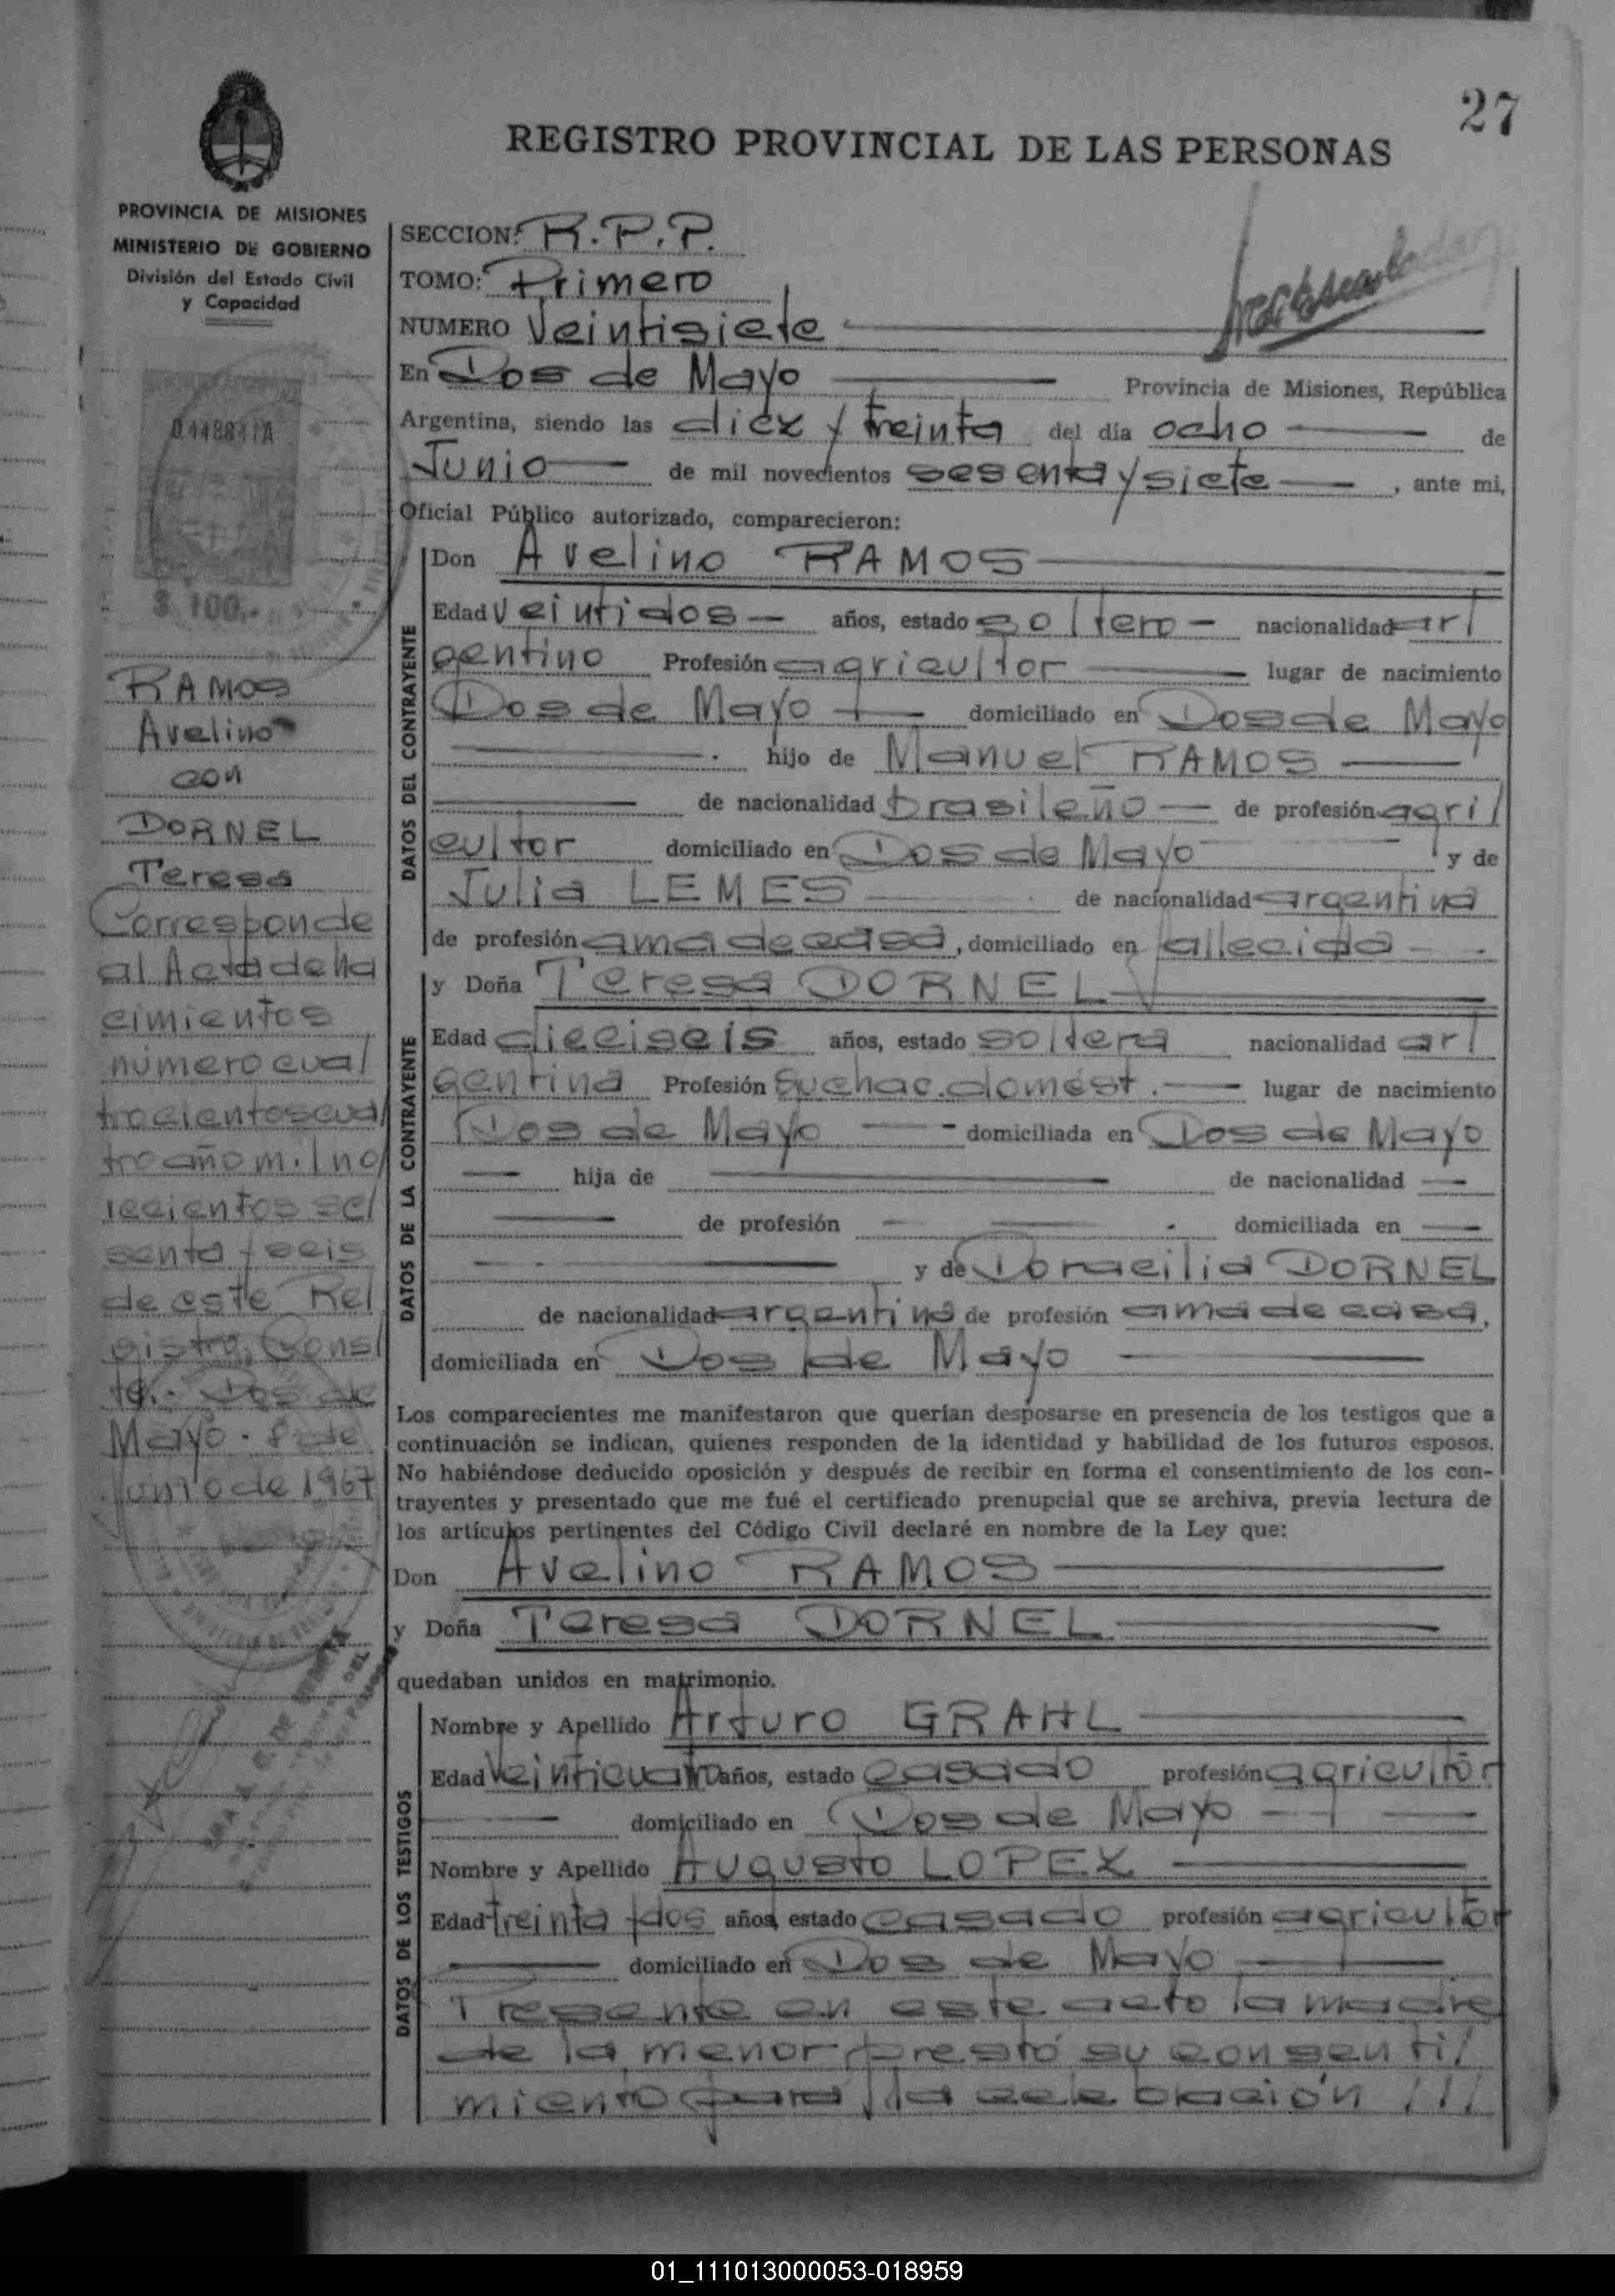 27
REGISTRO PROVINCIAL DE LAS PERSONAS
PROVINCIA DE MISIONES
MINISTERIO DE GOBIERNO
División del Estado Civil
y Capacidad
0.448841A
$ 100.-
RAMOS
Avelino
con
DORNEL
Teresa
Corresponde
al Acta de na
cimientos
número cua/
trocientos cua/
tro año mil no/
vecientos se/
senta y seis
de este Re/
gistro. Cons/
te.- Dos de
Mayo. 8 de
Junio de 1967
SECCION: R.P.P.
TOMO: Primero
NUMERO Veintisiete
En Dos de Mayo Provincia de Misiones, República
Argentina, siendo las diez y treinta del día ocho de
Junio de mil novecientos sesenta y siete, ante mi,
Oficial Público autorizado, comparecieron:
DATOS DEL CONTRAYENTE
Don Avelino RAMOS
Edad veintidos años, estado soltero nacionalidad ar/
gentino Profesión agricultor lugar de nacimiento
Dos de Mayo domiciliado en Dos de Mayo
hijo de Manuel RAMOS
de nacionalidad brasileño de profesión agri/
cultor domiciliado en Dos de Mayo y de
Julia LEMES de nacionalidad argentina
de profesión ama de casa, domiciliado en fallecida
DATOS DE LA CONTRAYENTE
y Doña Teresa DORNEL
Edad dieciseis años, estado soltera nacionalidad ar/
gentina Profesión Quehac. domést. lugar de nacimiento
Dos de Mayo domiciliada en Dos de Mayo
hija de de nacionalidad
de profesión domiciliada en
y de Doracilia DORNEL
de nacionalidad argentina de profesión ama de casa,
domiciliada en Dos de Mayo
Los comparecientes me manifestaron que querían desposarse en presencia de los testigos que a
continuación se indican, quienes responden de la identidad y habilidad de los futuros esposos.
No habiéndose deducido oposición y después de recibir en forma el consentimiento de los con-
trayentes y presentado que me fué el certificado prenupcial que se archiva, previa lectura de
los artículos pertinentes del Código Civil declaré en nombre de la Ley que:
Don Avelino RAMOS
y Doña Teresa DORNEL
quedaban unidos en matrimonio.
DATOS DE LOS TESTIGOS
Nombre y Apellido Arturo GRAHL
Edad veinticuatro años, estado casado profesión agricultor
domiciliado en Dos de Mayo
Nombre y Apellido Augusto LOPEZ
Edad treinta y dos años, estado casado profesión agricultor
domiciliado en Dos de Mayo
Presente en este acto la madre
de la menor prestó su consenti/
miento para la celebración ///
01_111013000053-018959